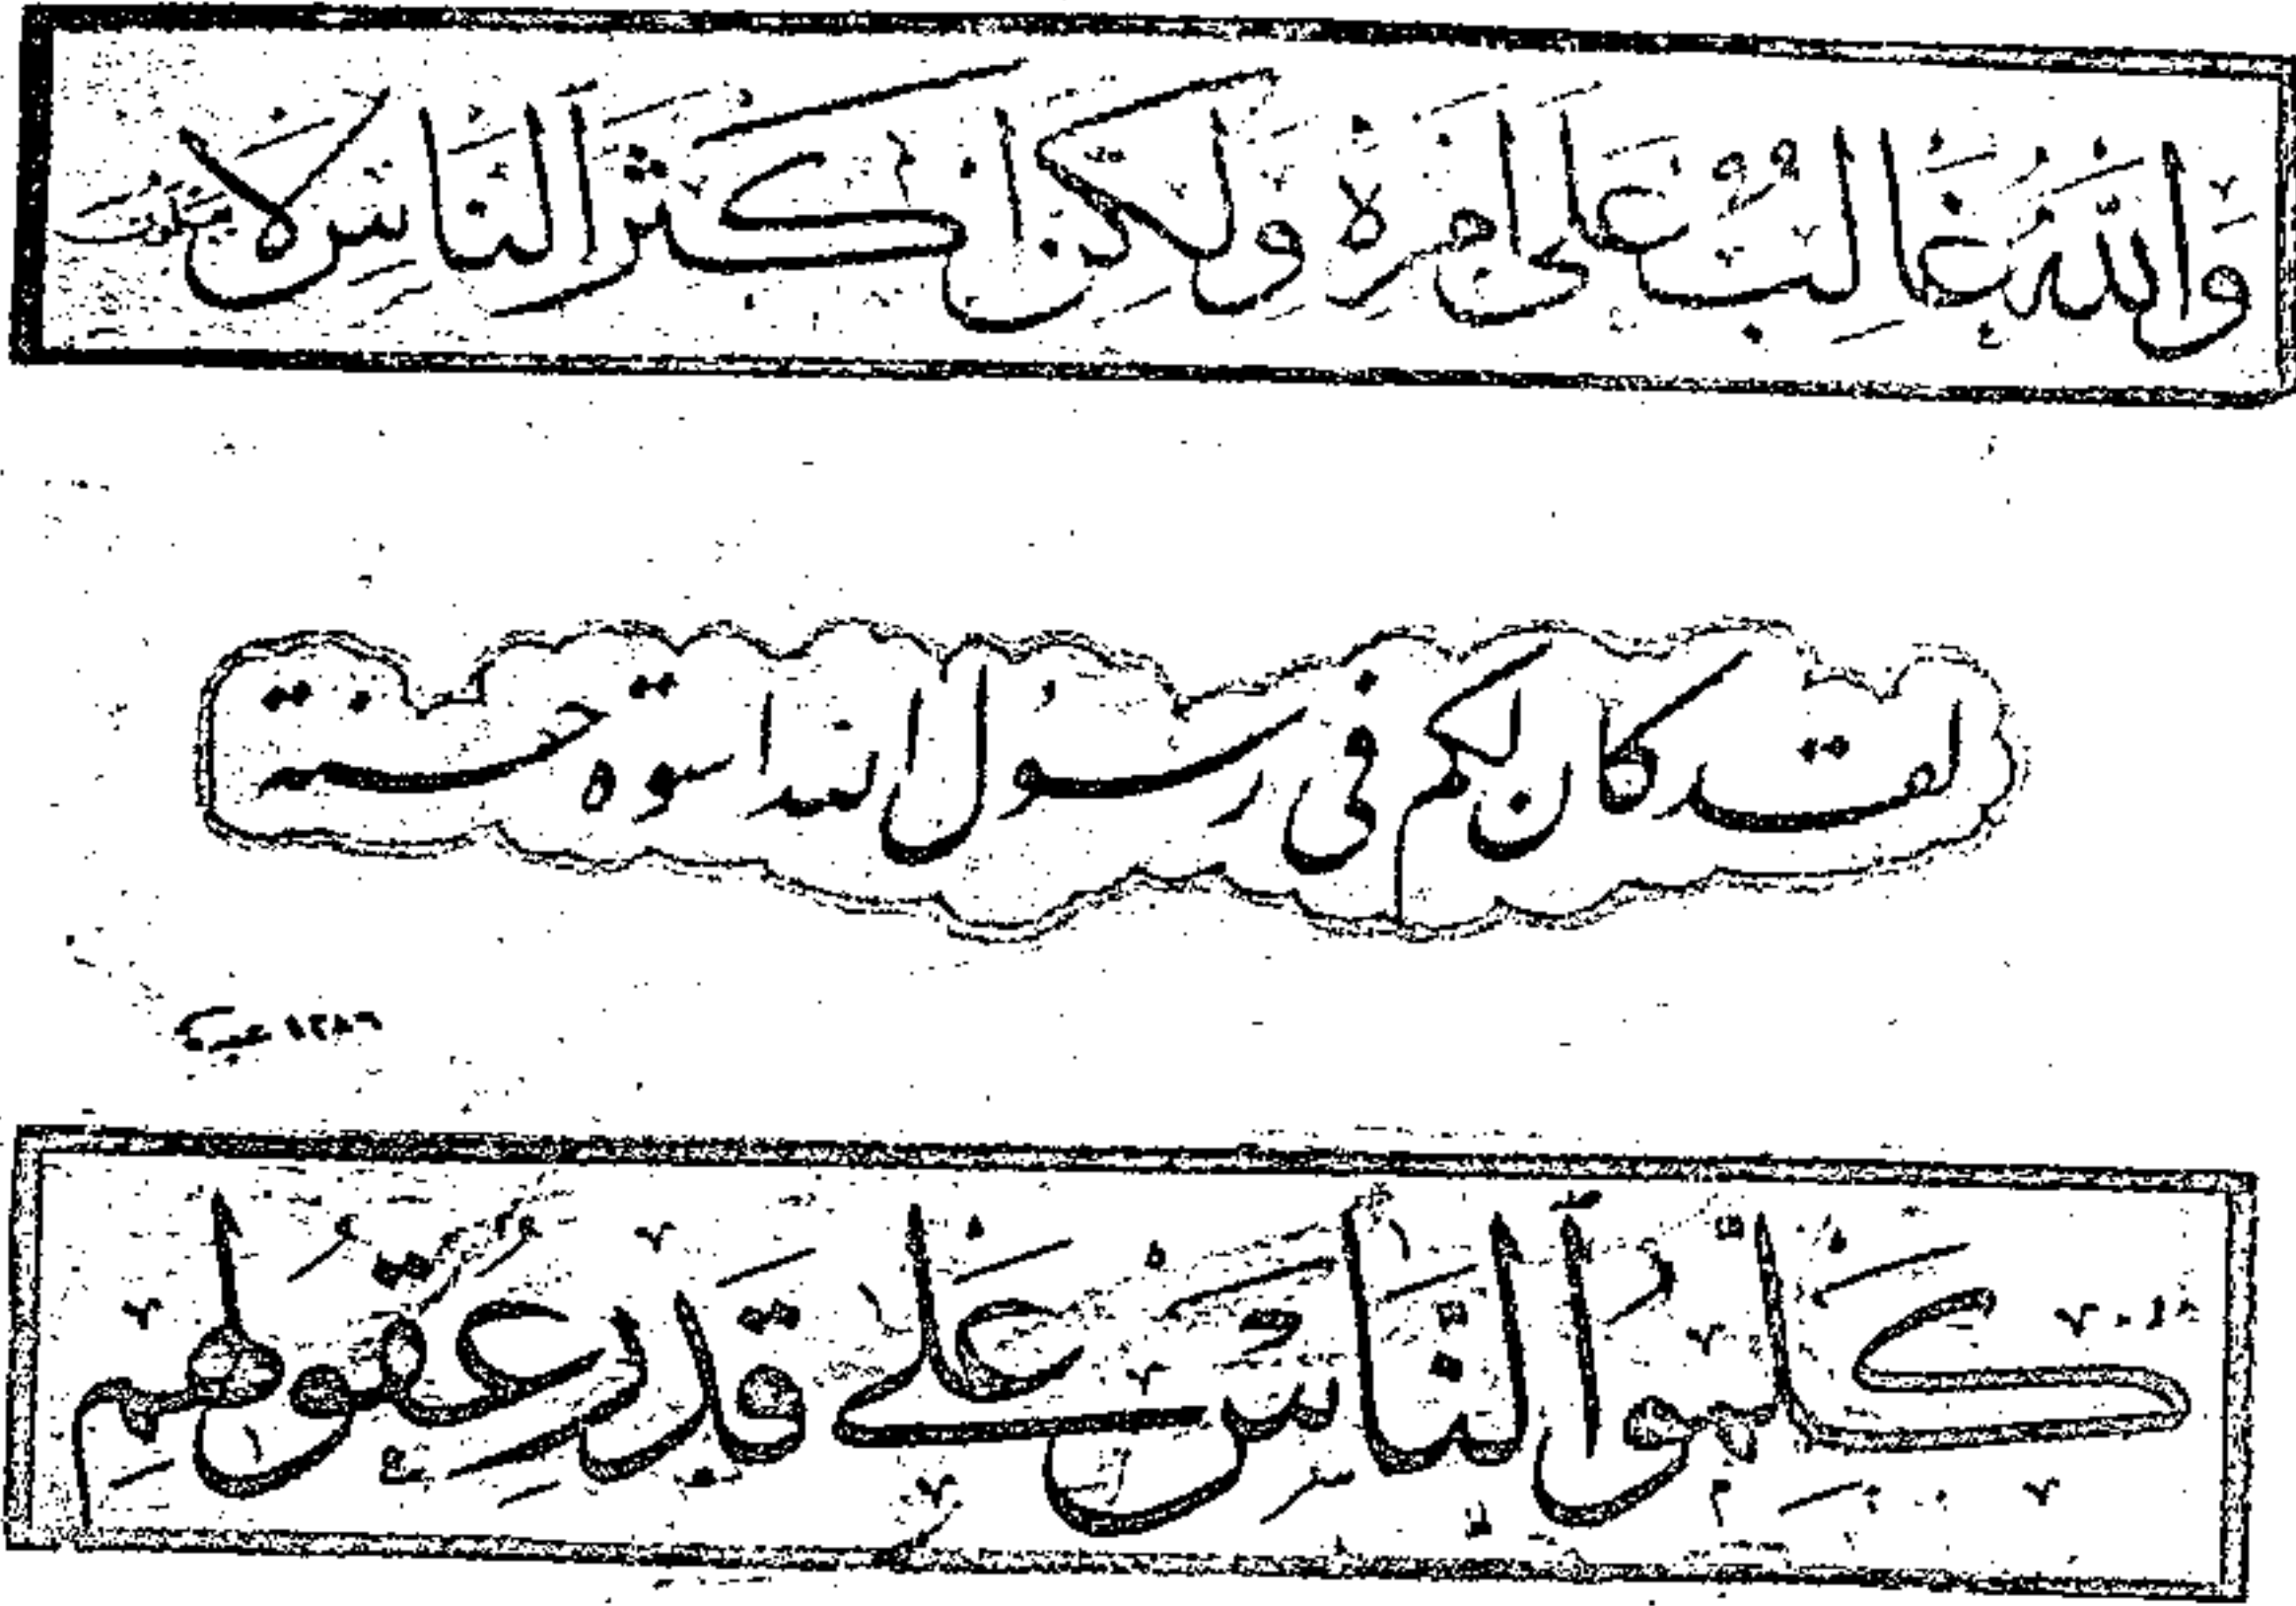 وَاللّٰهُ غَالِبٌ عَلٰى اَمْرِهٖ وَلٰكِنَّ اَكْثَرَ النَّاسِ لَا يَعْلَمُونَ
لقد كان لكم فى رسول الله اسوة حسنة
١٢٨٦
كَلِّمُوا النَّاسَ عَلٰى قَدْرِ عُقُولِهِمْ